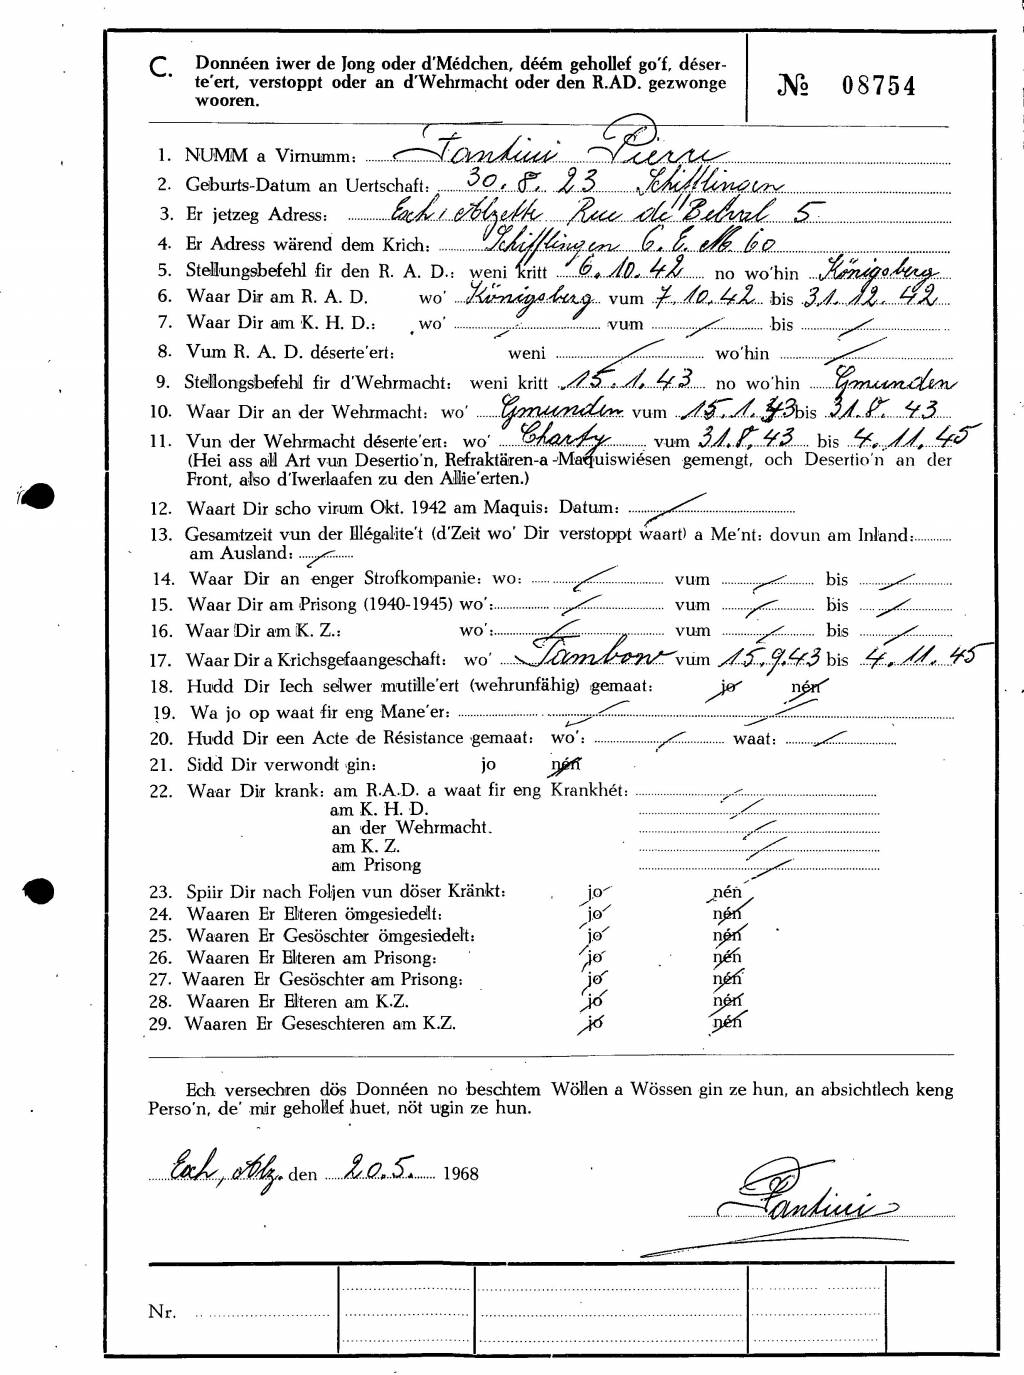 C. Donnéen iwer de Jong oder d'Médchen, déém gehollef go'f, déser-
te'ert, verstoppt oder an d'Wehrmacht oder den R.AD. gezwonge
wooren.
№ 08754
1. NUMM a Virnumm: Fantini Pierre
2. Geburts-Datum an Uertschaft: 30. 8. 23 Schifflingen
3. Er jetzeg Adress: Esch, Alzette Rue de Belval 5
4. Er Adress wärend dem Krich: Schifflingen C. E. M. 60
5. Stellungsbefehl fir den R. A. D.: weni kritt 6. 10. 42 no wo'hin Königsberg
6. Waar Dir am R. A. D. wo' Königsberg vum 7. 10. 42 bis 31. 12. 42
7. Waar Dir am K. H. D.: wo' vum bis
8. Vum R. A. D. déserte'ert: weni wo'hin
9. Stellongsbefehl fir d'Wehrmacht: weni kritt 15. 1. 43 no wo'hin Gmunden
10. Waar Dir an der Wehrmacht: wo' Gmunden vum 15. 1. 43 bis 31. 8. 43
11. Vun der Wehrmacht déserte'ert: wo' Charty vum 31. 8. 43 bis 4. 11. 45
(Hei ass all Art vun Desertio'n, Refraktären-a -Maquiswiésen gemengt, och Desertio'n an der
Front, also d'Iwerlaafen zu den Allie'erten.)
12. Waart Dir scho virum Okt. 1942 am Maquis: Datum:
13. Gesamtzeit vun der Illégalite't (d'Zeit wo' Dir verstoppt waart) a Me'nt: dovun am Inland:
am Ausland:
14. Waar Dir an enger Strofkompanie: wo: vum bis
15. Waar Dir am Prisong (1940-1945) wo': vum bis
16. Waar Dir am K. Z.: wo': vum bis
17. Waar Dir a Krichsgefaangeschaft: wo' Tambow vum 15. 9. 43 bis 4. 11. 45
18. Hudd Dir Iech selwer mutille'ert (wehrunfähig) gemaat: jo nén
19. Wa jo op waat fir eng Mane'er:
20. Hudd Dir een Acte de Résistance gemaat: wo': waat:
21. Sidd Dir verwondt gin: jo nén
22. Waar Dir krank: am R.A.D. a waat fir eng Krankhét:
am K. H. D.
an der Wehrmacht.
am K. Z.
am Prisong
23. Spiir Dir nach Foljen vun döser Kränkt: jo nén
24. Waaren Er Elteren ömgesiedelt: jo nén
25. Waaren Er Gesöschter ömgesiedelt: jo nén
26. Waaren Er Elteren am Prisong: jo nén
27. Waaren Er Gesöschter am Prisong: jo nén
28. Waaren Er Elteren am K.Z. jo nén
29. Waaren Er Geseschteren am K.Z. jo nén
Ech versechren dös Donnéen no beschtem Wöllen a Wössen gin ze hun, an absichtlech keng
Perso'n, de' mir gehollef huet, nöt ugin ze hun.
Esch, Alz. den 20. 5. 1968
Fantini
Nr.